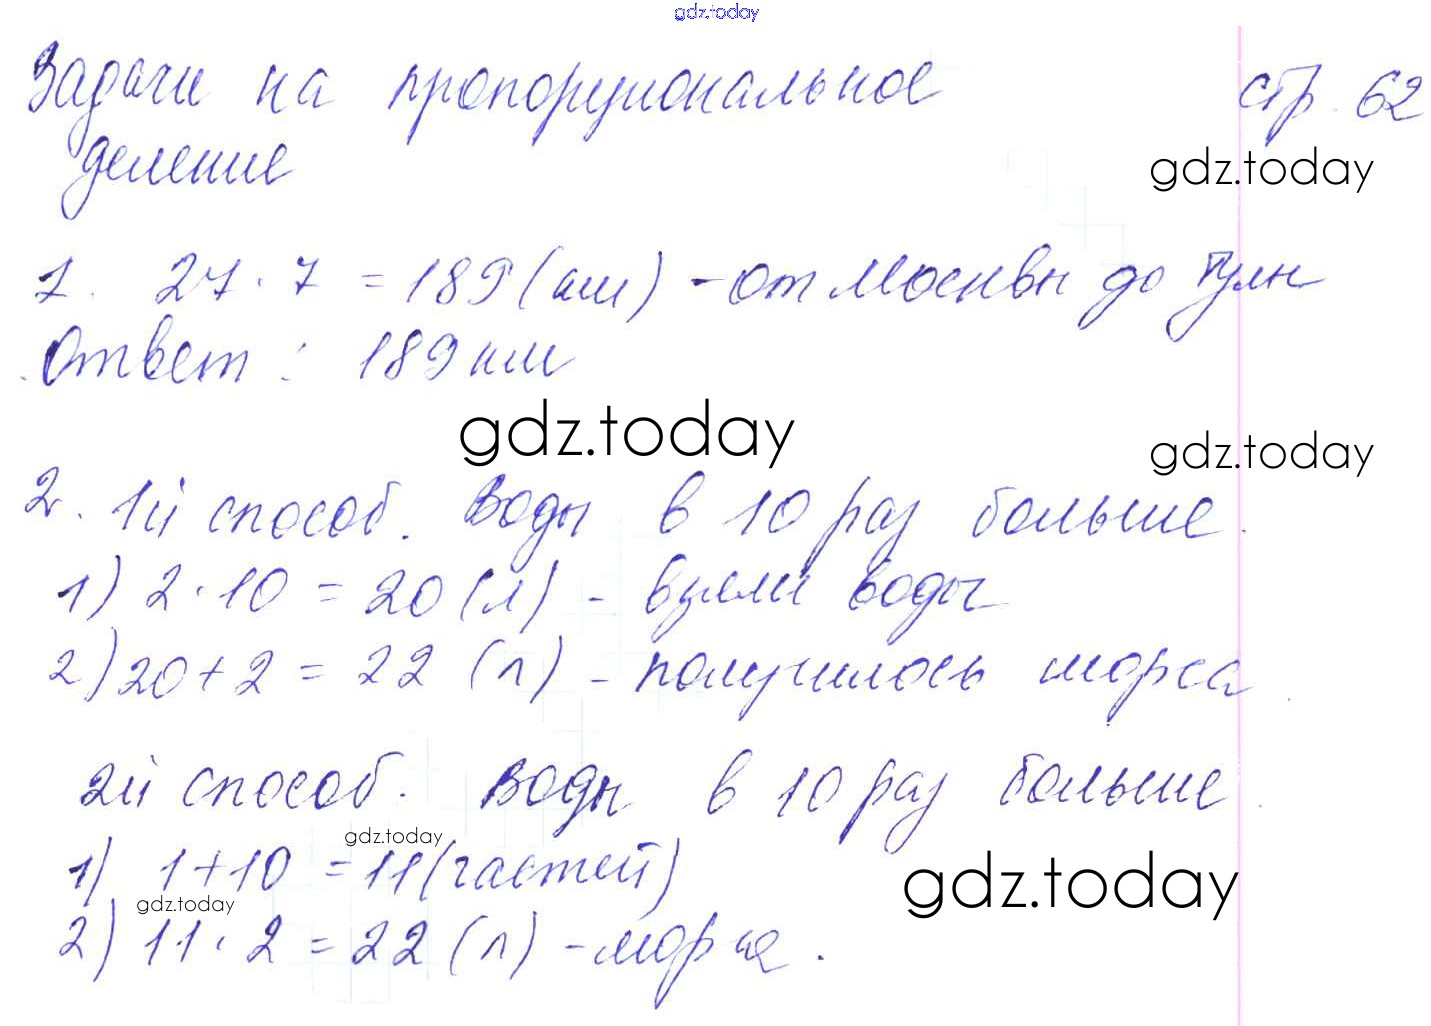 gdz.today
Задачи на пропорциональное стр. 62
деление
gdz.today
1. 27 · 7 = 189 (км) - от Москвы до Тулы
Ответ: 189 км
gdz.today
gdz.today
2. 1й способ. Воды в 10 раз больше.
1) 2 · 10 = 20 (л) - взяли воды
2) 20 + 2 = 22 (л) - получилось морса
2й способ. Воды в 10 раз больше.
gdz.today
1) 1 + 10 = 11 (частей)
gdz.today
gdz.today
2) 11 · 2 = 22 (л) - морса.